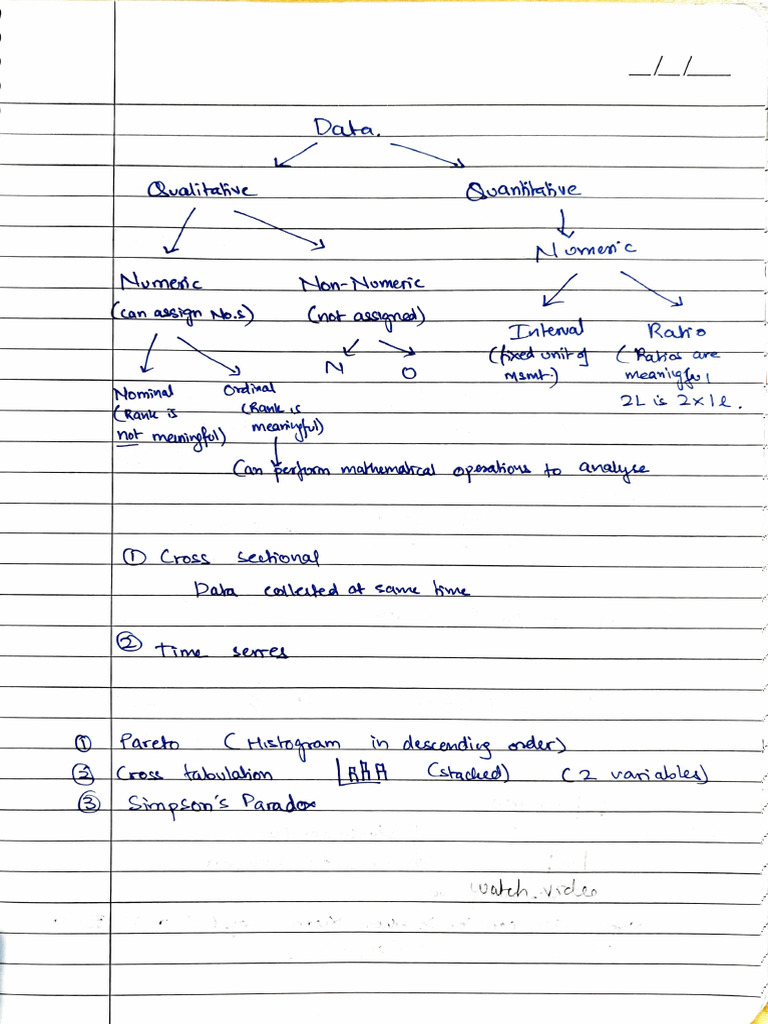 __/__/____
Data.
Qualitative Quantitative
Numeric
Numeric Non-Numeric
(can assign No.s) (not assigned)
Interval Ratio
(fixed unit of (Ratios are
N O msmt.) meaningful
Nominal Ordinal
2L is 2x1l.
(Rank is (Rank is
not meaningful) meaningful)
Can perform mathematical operations to analyse
① Cross sectional
Data collected at same time
② Time series
① Pareto (Histogram in descending order)
② Cross tabulation (stacked) (2 variables)
③ Simpson's Paradox
watch video